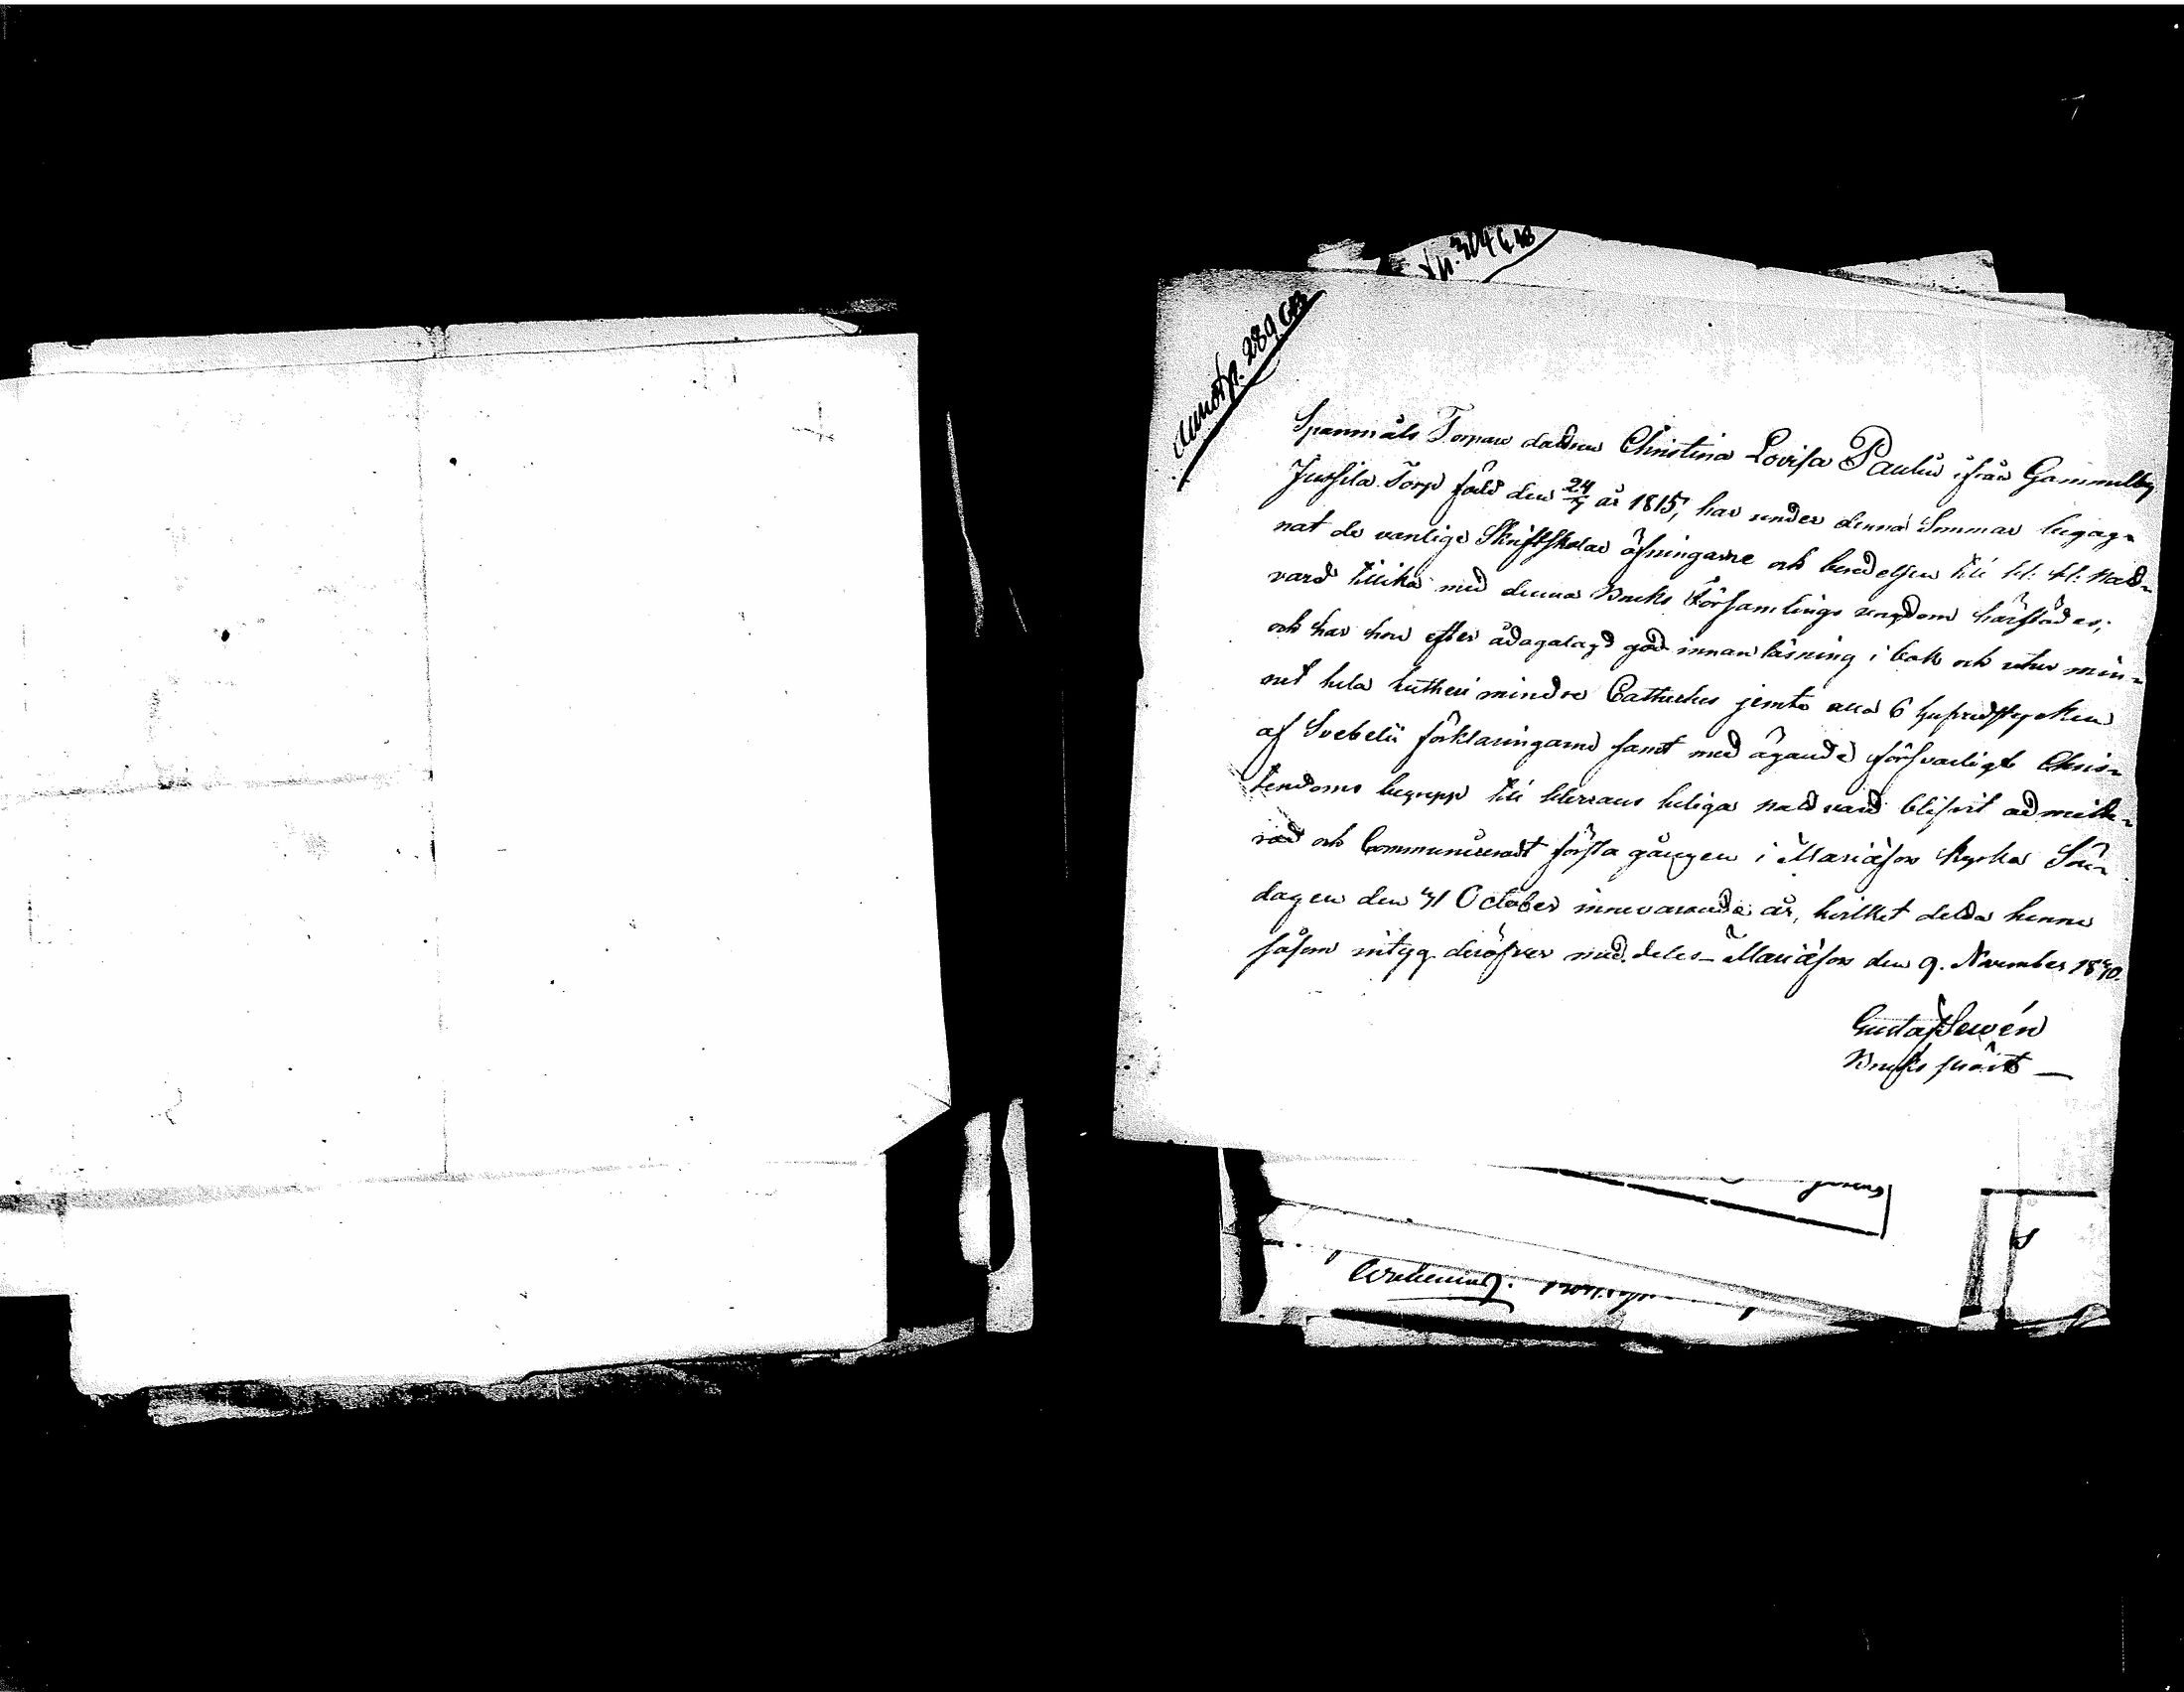 p. 304
p. 289
Spanmåls Torpare dottren Christina Lovisa Paulin ifrån Gammelby
Jussila Torp född den 24/7 år 1815, har under denna Sommar begag-
nat de vanlige Skriftskolae öfningarne och beredelsen till hl: hl: Natt-
vard tillika med denna Bruks Församlings ungdom härstädes;
och har hon efter ådagalagd god innanläsning i bok och utur min-
net hela Lutheri mindre Catheches jemte alla 6 hufvudstycken
af Svebelii förklaringarne samt med ägande försvarligt Chris-
tendoms begrepp till Herrans heliga nattvard blifvit admitte-
rad och Communicerat första gången i Mariæfors kyrka Sön-
dagen den 31 October innevarande år, hvilket detta henne
såsom intyg deröfver meddeles - Mariæfors den 9. November 1830.
Gustaf
Bruks